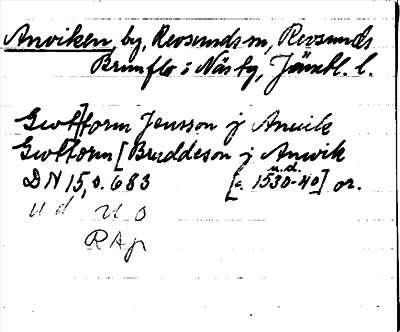 Anviken, by, Revsunds sn, Revsunds
Brunflo i Näs tg, Jämtl. l.
Guttorm Jonsson j Anvik
Guttorm [Bruddeson j Anwik
DN 15, s. 683 [c. 1530-40] or.
u.d.
u d u o
RAp